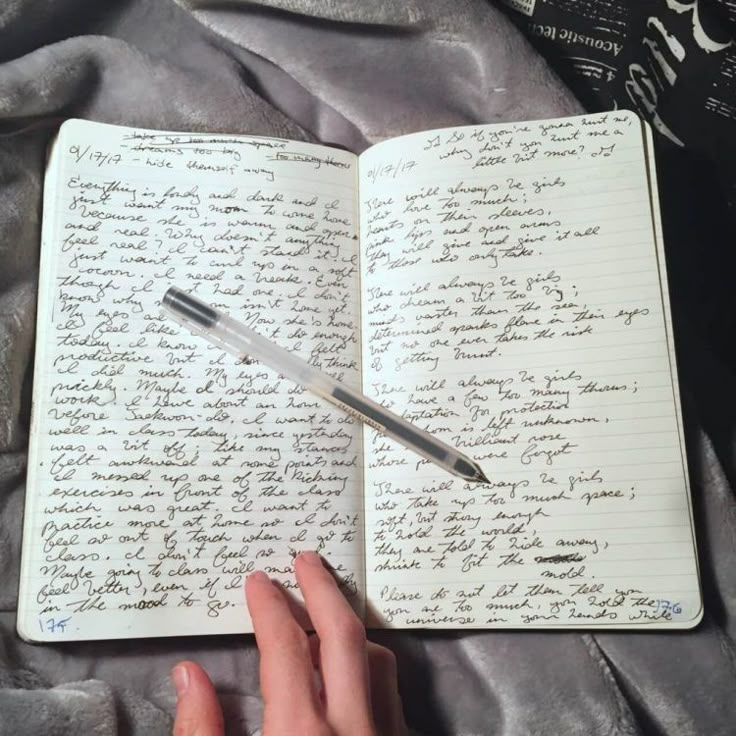 - take up too much space
- dreams too big
- too many thorns
- hide themself away
9/17/17
Everything is foggy and dark and I
just want my mom to come home
because she is warm and open
and real. Why doesn't anything
feel real? I can't stand it. I
just want to curl up in a soft
cocoon. I need a break. Even
though I just had one. I don't
know why mom isn't home yet.
My eyes a Now she's home.
I feel like I didn't do enough
today. I know I felt
productive but I don't really think
I did much. My eyes all
prickly. Maybe I should do
work. I have about an hour
before Taekwon-do. I want to do
well in class today, since yesterday
was a bit off; like my stances
felt awkward at some points and
I messed up one of the kicking
exercises in front of the class
which was great. I want to
practice more at home so I don't
feel so out of touch when I go to
class. I don't feel so good.
Maybe going to class will make me
feel better, even if I
in the mood to go.
175.
So if you're gonna hurt me,
why don't you hurt me a
little bit more?
9/17/17
There will always be girls
who love too much;
hearts on their sleeves,
pink lips and open arms
they will give and give it all
to those who only take.
There will always be girls
who dream a bit too big;
minds vaster than the sea,
determined sparks flare in their eyes
but no one ever takes the risk
of getting burnt.
There will always be girls
who have a few too many thorns;
adaptation for protection
thorn is left unknown,
she brilliant rose
whose were forgot
There will always be girls
who take up too much space;
soft, but strong enough
to hold the world,
they are told to hide away,
shrink to fit the
mold.
Please do not let them tell you
you are too much, you hold the
universe in your hands while
176
Acoustic
4